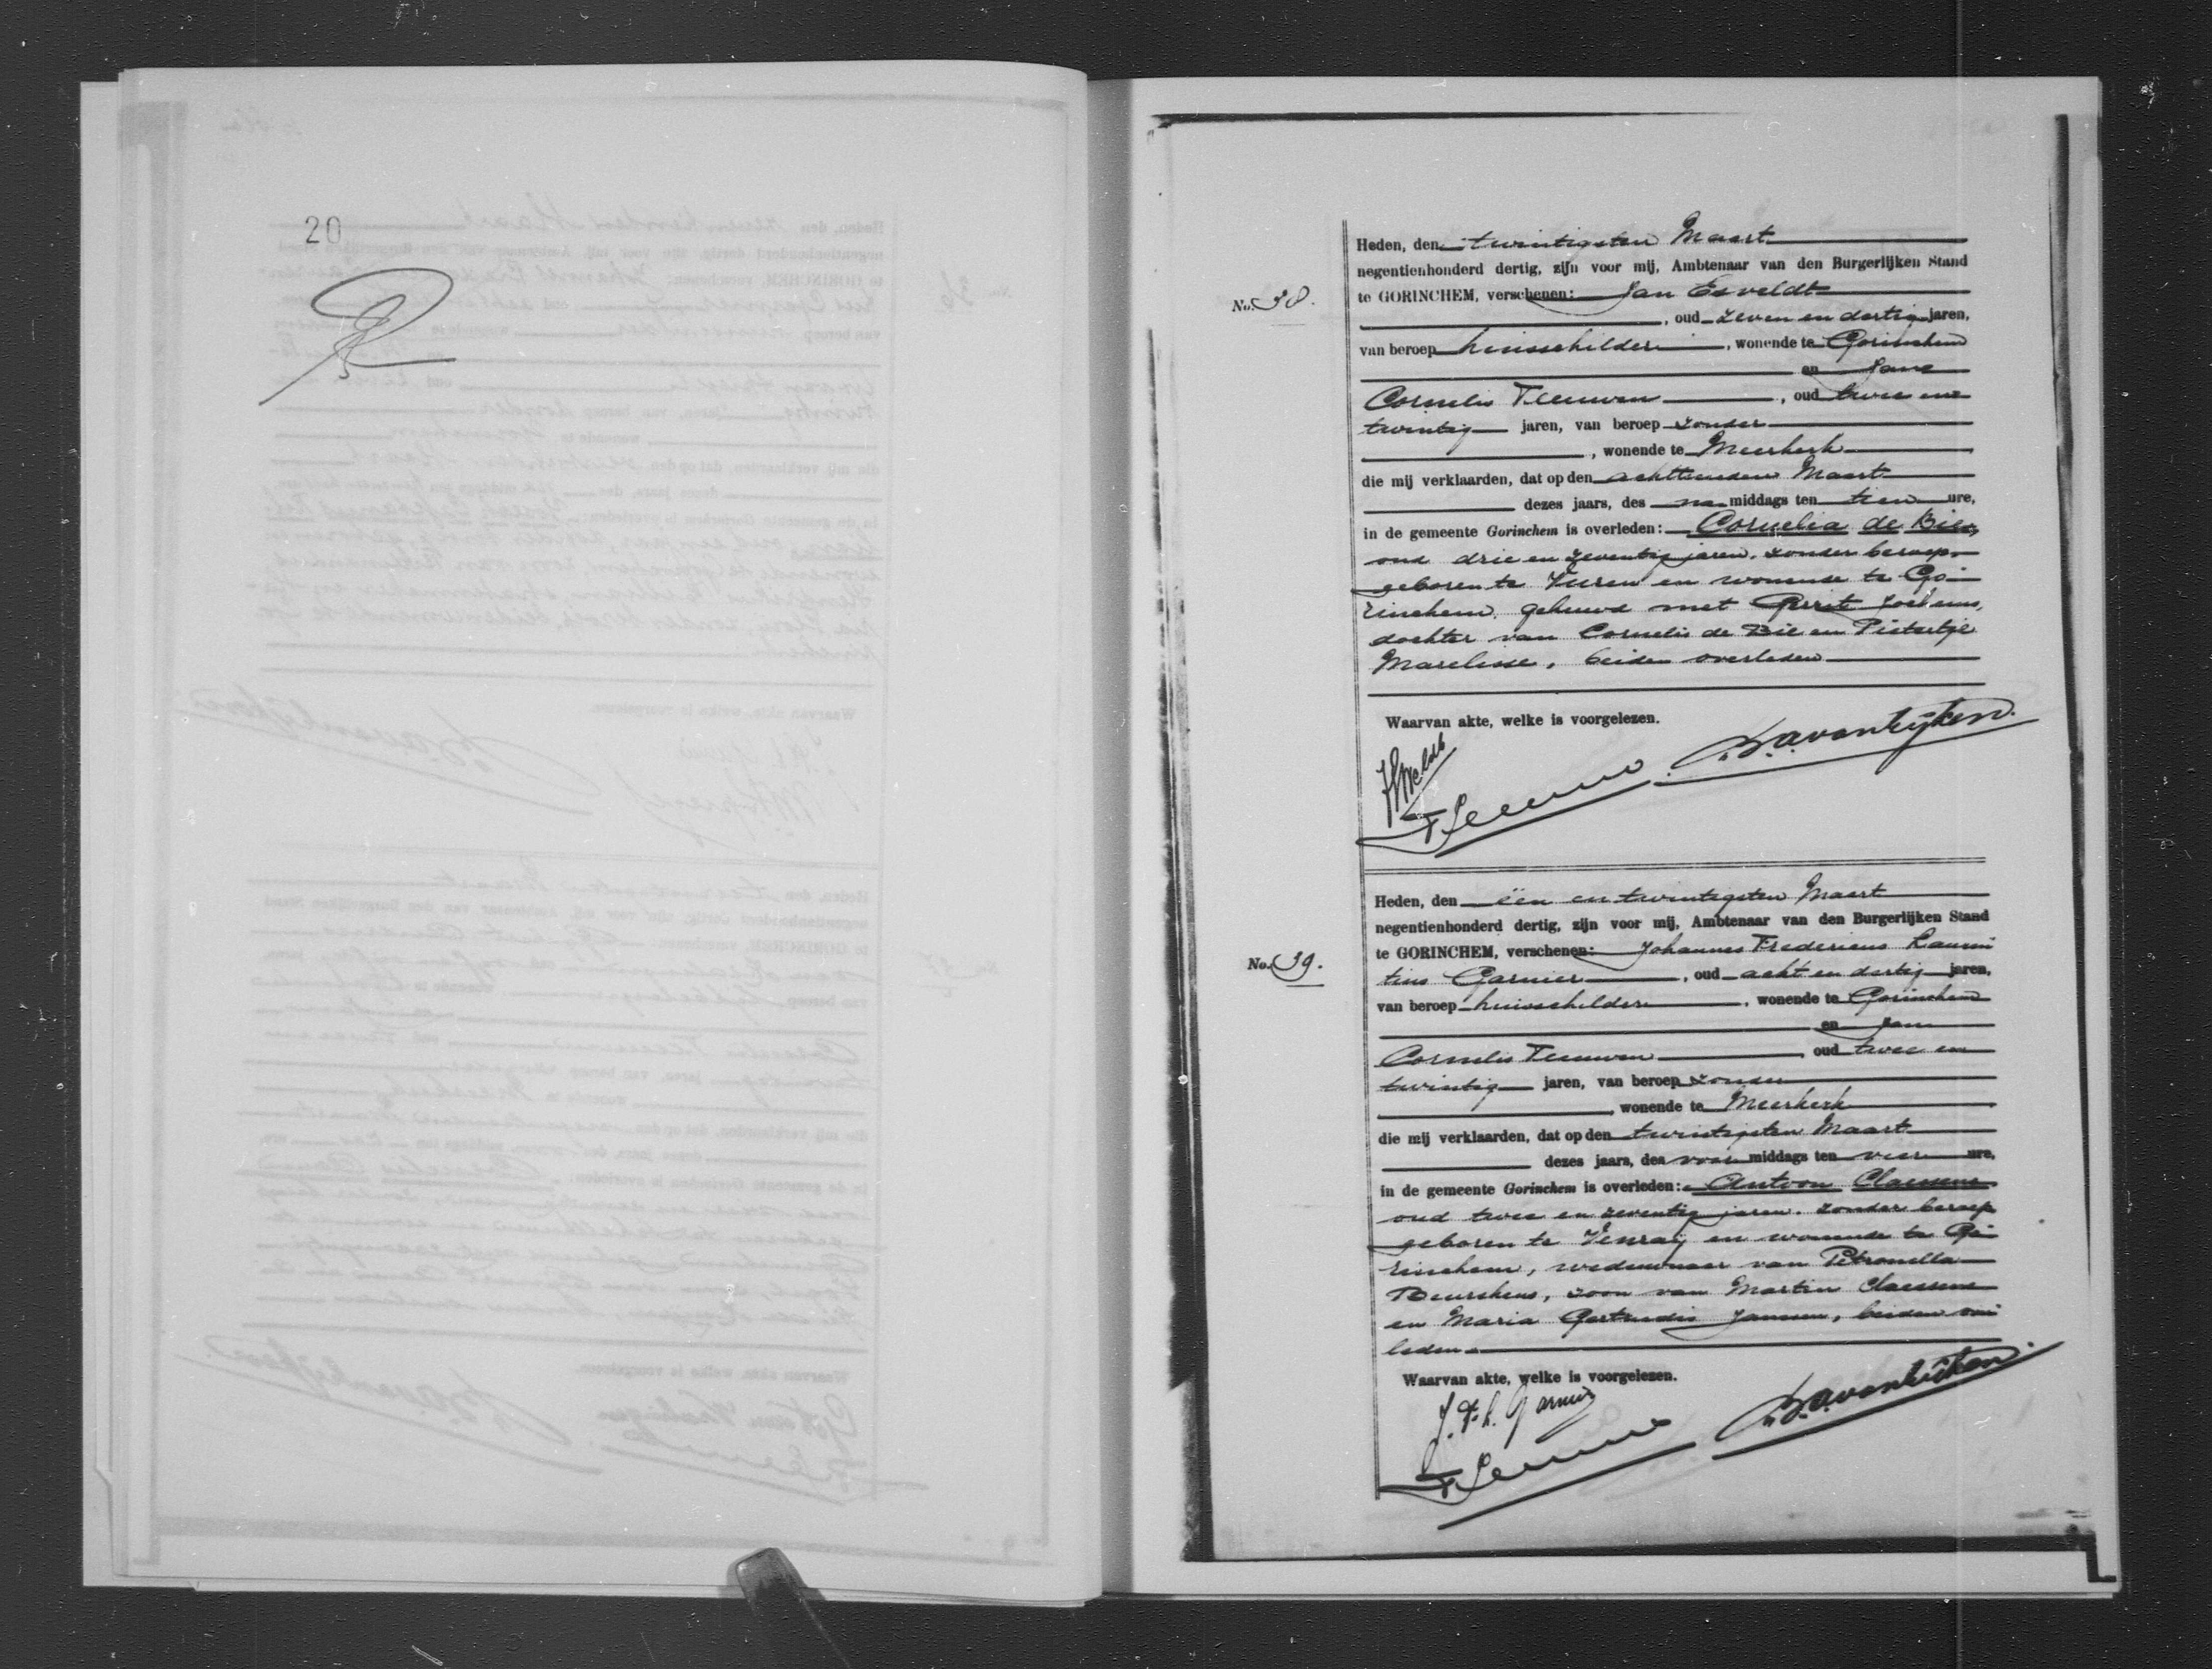 20
No. 38.
Heden, den twintigsten Maart
negentienhonderd dertig, zijn voor mij, Ambtenaar van den Burgerlijken Stand
te GORINCHEM, verschenen: Jan Esveldt
, oud zeven en dertig jaren,
van beroep huisschilder, wonende te Gorinchem
en Jan
Cornelis Teeuwen, oud twee en
twintig jaren, van beroep zonder
, wonende te Meerkerk
die mij verklaarden, dat op den achttienden Maart
dezes jaars, des na middags ten tien ure,
in de gemeente Gorinchem is overleden: Cornelia de Bie,
oud drie en zeventig jaren, zonder beroep
geboren te Vuren en wonende te Go-
rinchem, gehuwd met Gerrit
dochter van Cornelis de Bie en Pietertje
beiden overleden
Waarvan akte, welke is voorgelezen.
No. 39.
Heden, den één en twintigsten Maart
negentienhonderd dertig, zijn voor mij, Ambtenaar van den Burgerlijken Stand
te GORINCHEM, verschenen: Johannes Fredericus Lauren
tius Garnier, oud acht en dertig jaren,
van beroep huisschilder, wonende te Gorinchem
en Jan
Cornelis Teeuwen, oud twee en
twintig jaren, van beroep zonder
, wonende te Meerkerk
die mij verklaarden, dat op den twintigsten Maart
dezes jaars, des voor middags ten vier ure,
in de gemeente Gorinchem is overleden: Antoon Claessens
oud twee en zeventig jaren, zonder beroep
geboren te Venraij en wonende te Go-
rinchem, weduwnaar van Petronella
zoon van Martin Claessens
en Maria Gertrudis Janssen, beiden over
leden.
Waarvan akte, welke is voorgelezen.
J. F. L. Garnier